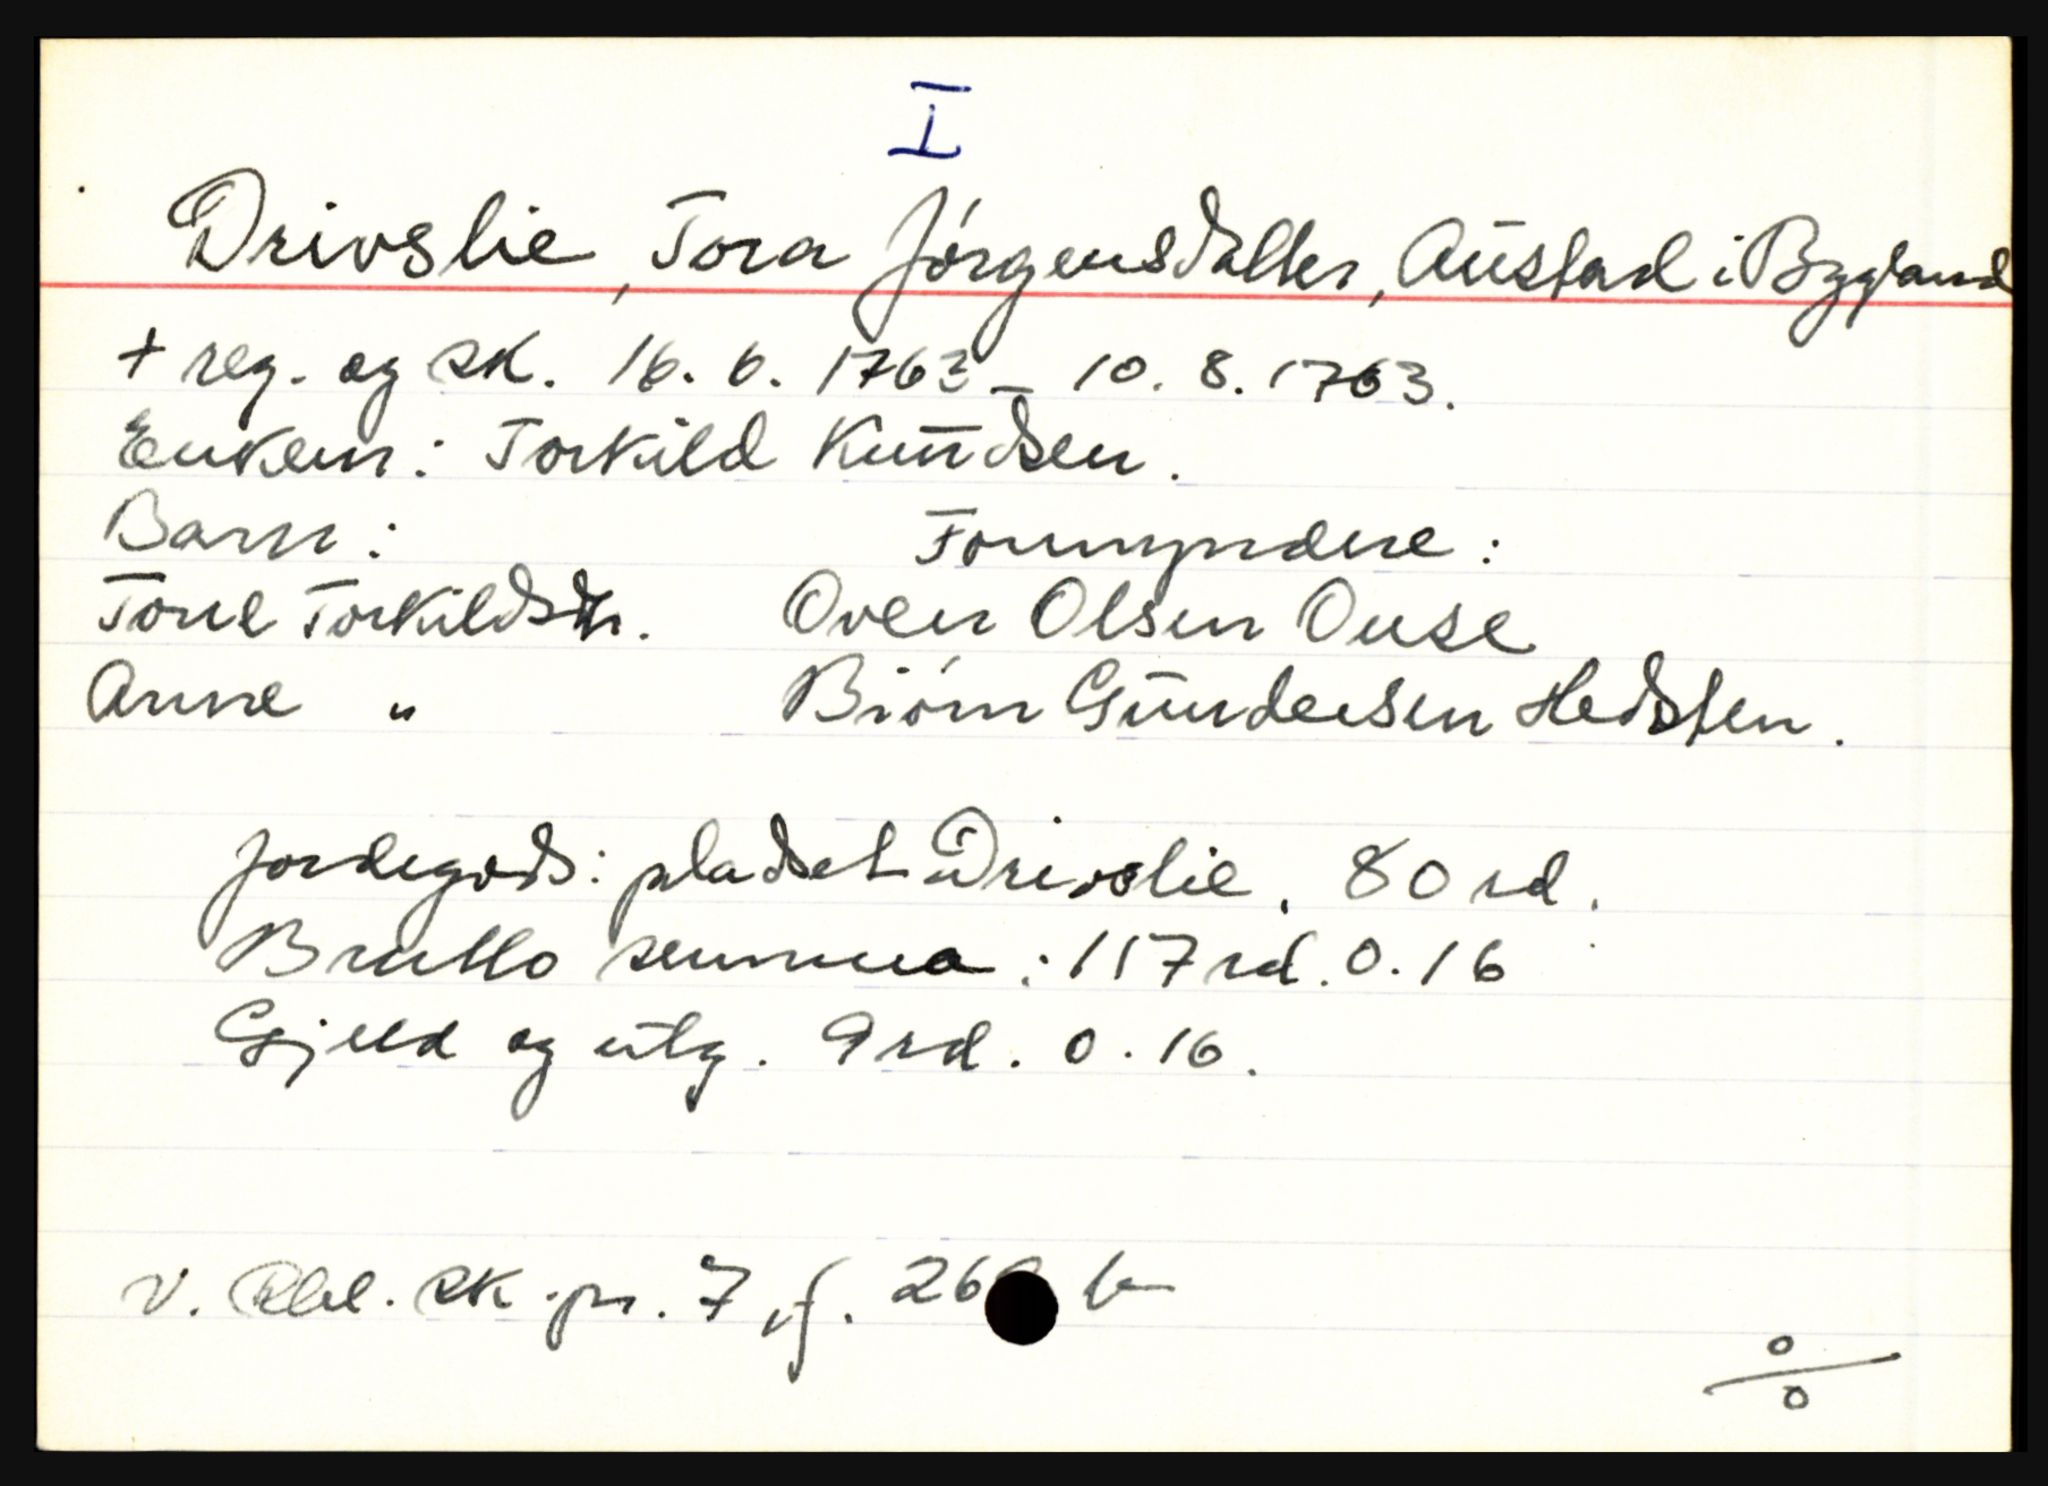 I
Drivslie, Tora Jørgensdatter, Austad i Bygland
+ reg. og sk. 16. 6. 1763 - 10. 8. 1763.
Enkem: Torkild Knudsen.
Barn: Formyndere:
Torne Torkildsdtr. Oven Olsen Ouse
Anne " Biørn Gundersen Hedsten.
Jordegods: pladset Drivslie, 80 rd.
Brutto summa: 117 rd. 0. 16
Gjeld og utg. 9 rd. 0. 16.
V. Rbl. sk. pr. 7, f. 26 b
o/o